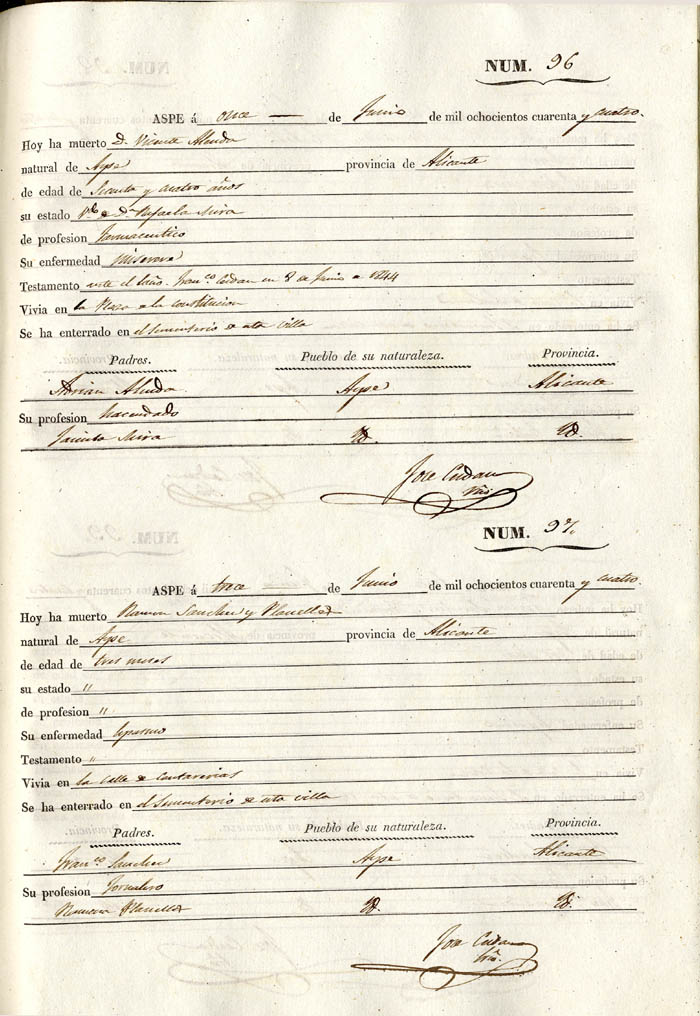 NUM. 96
ASPE á once — de Junio de mil ochocientos cuarenta y cuatro.
Hoy ha muerto D. Vicente Almda
natural de Aspe provincia de Alicante
de edad de secenta y cuatro años
su estado Vdo. de Dª Rafaela Mira
de profesion farmaceutico
Su enfermedad Miserere
Testamento ante el Esño. Franco. Cerdan en 8 de Junio de 1844
Vivia en la Plaza de la constitucion
Se ha enterrado en el sementerio de esta villa
Padres. Pueblo de su naturaleza. Provincia.
Adrian Aspe Alicante
Su profesion hacendado
Jacinta Mira Id. Id.
Jose Cerdan
NUM. 97.
ASPE á trece de Junio de mil ochocientos cuarenta y cuatro.
Hoy ha muerto Ramon Sanchez y Planelles
natural de Aspe provincia de Alicante
de edad de tres meses
su estado "
de profesion "
Su enfermedad Espasmo
Testamento "
Vivia en la Calle de Cantarerias
Se ha enterrado en el Sementerio de esta villa
Padres. Pueblo de su naturaleza. Provincia.
Franco. Sanchez Aspe Alicante
Su profesion Jornalero
Ramona Planelles Id. Id.
Jose Cerdan